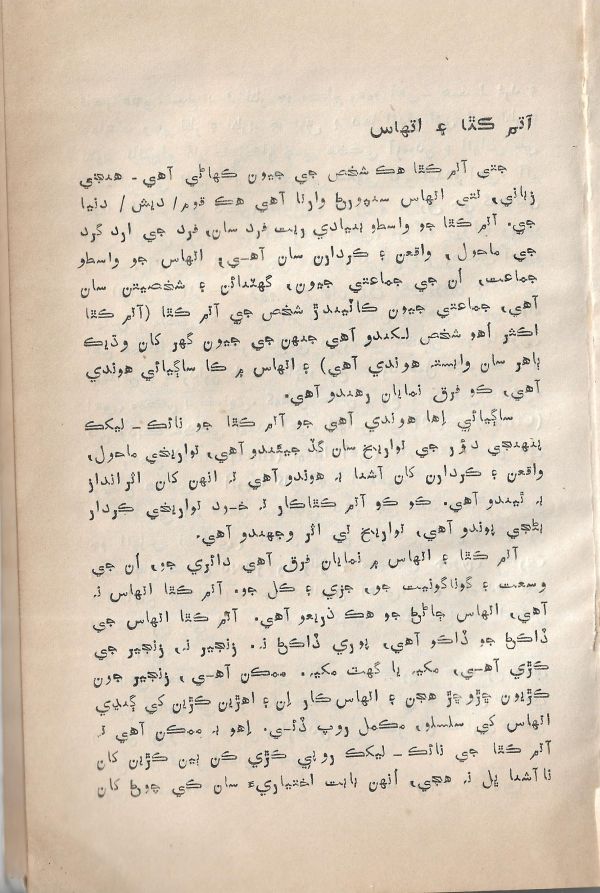 آتم ڪٿا ۽ اتهاس
جتي آتم ڪٿا هڪ شخص جي جيون ڪهاڻي آهي ـ هنجي
زباني، تتي اتهاس سنپورڻ وارتا آهي هڪ قوم/ ديش/ دنيا
جي. آتم ڪٿا جو واسطو بنيادي ريت فرد سان، فرد جي ارد گرد
جي ماحول، واقعن ۽ ڪردارن سان آهـي، اتهاس جو واسطو
جماعت، اُن جي جماعتي جيون، گهٽنائن ۽ شخصيتن سان
آهي، جماعتي جيون ڪاٽيندڙ شخص جي آتم ڪٿا (آتم ڪٿا
اڪثر اُهو شخص لـکندو آهي جنهن جي جيون گهر کان وڌيڪ
ٻاهر سان وابسته هوندي آهي) ۽ اتهاس ۾ ڪا ساڳيائي هوندي
آهي، ڪو فرق نمايان رهندو آهي.
ساڳيائي اِها هوندي آهي جو آتم ڪٿا جو نائڪ ـ ليکڪ
پنهنجي دؤر جي تواريخ سان گڏ جيئندو آهي، تواريخي ماحول،
واقعن ۽ ڪردارن کان آشنا بہ هوندو آهي تہ انهن کان اثرانداز
بہ ٿيندو آهي. ڪو ڪو آتم ڪٿاڪار تہ خـود تواريخي ڪردار
بڻجي پوندو آهي، تواريخ تي اثر وجهندو آهي.
آتم ڪٿا ۽ اتهاس ۾ نمايان فرق آهي دائري جو، اُن جي
وسعت ۽ گوناگونيت جو، جزي ۽ ڪل جو. آتم ڪٿا اتهاس نہ
آهي، اتهاس ڄاڻڻ جو هڪ ذريعو آهي. آتم ڪٿا اتهاس جي
ڏاڪڻ جو ڏاڪو آهي، پوري ڏاڪڻ نہ. زنجير نہ، زنجير جي
ڪڙي آهـي، مکيہ يا گهٽ مکيہ. ممڪن آهـي، زنجير جون
ڪڙيون ڇڙوڇڙ هجن ۽ اتهاس ڪار اِن ۽ اهڙين ڪڙين کي ڳنڍي
اتهاس کي سلسلو، مڪمل روپ ڏئـي. اِهو بہ ممڪن آهي تہ
آتم ڪٿا جي نائڪ ـ ليکڪ روپي ڪڙي ڪن ٻين ڪڙين کان
ناآشنا ڀل نہ هجي، اُنهن بابت اختياريءَ سان ڪي چوڻ کان